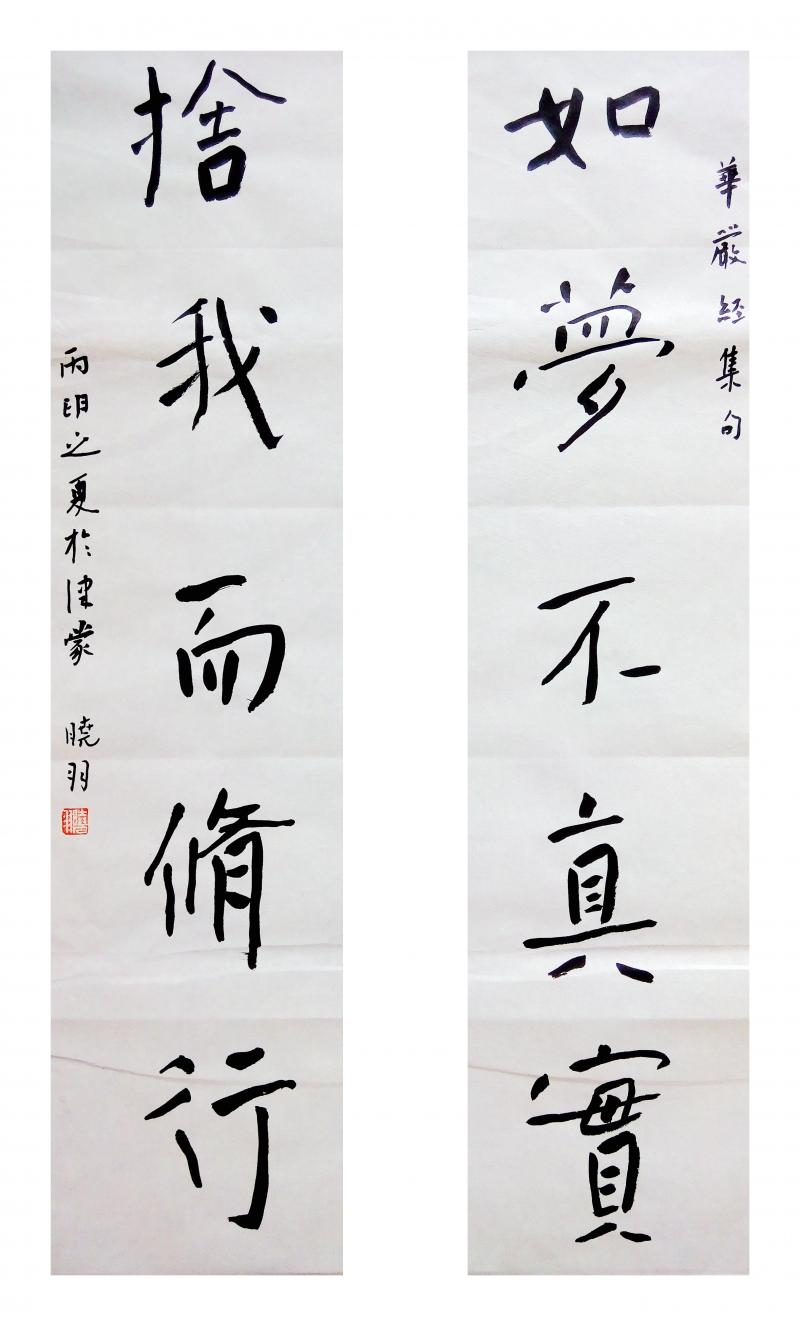 華嚴経集句
如夢不真實
捨我而脩行
丙之夏於蒙
曉羽